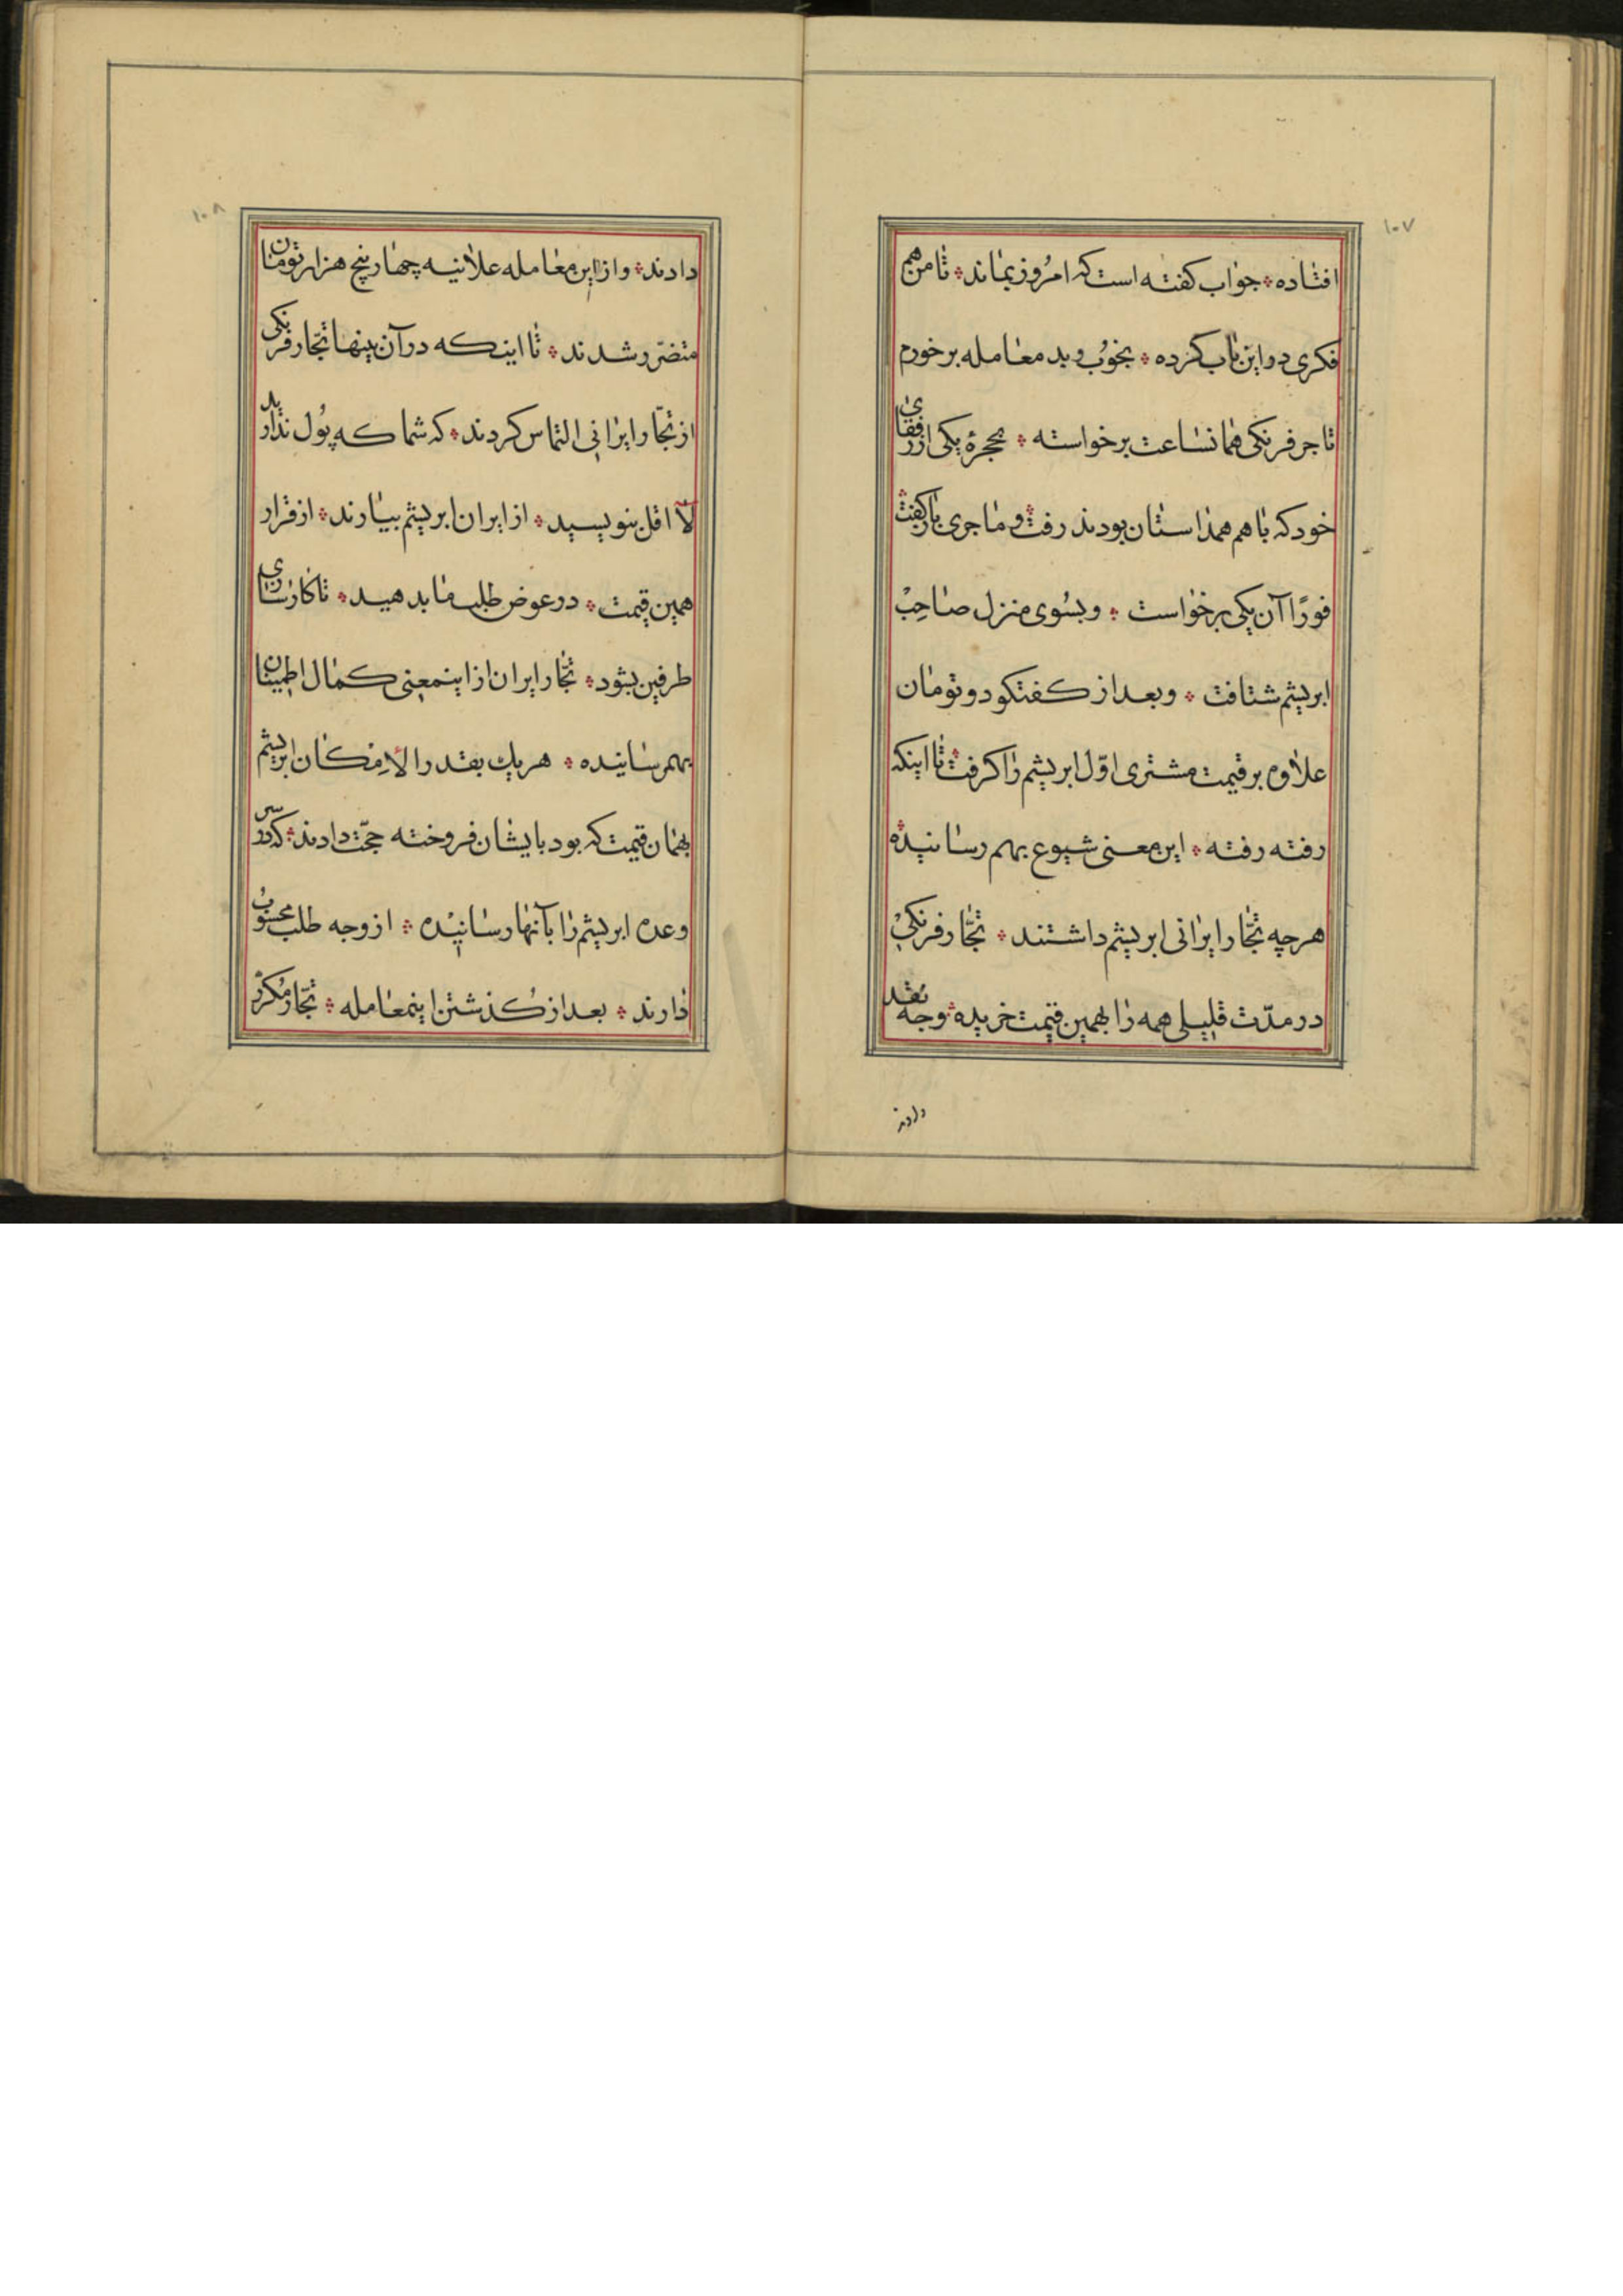 ۱۰۷
افتاده؞ جواب کفته است که امرُوز بماند؞ تا من هم
فکری در این باب کرده؞ بخوُب و بد معامله برخورم
تاجر فرنکی همانساعت برخواسته؞ بحجرهٔ یکی از رفقای
خود که با هم همداستان بودند رفت؞ و ماجری باز کفت؞
فورًا آن یکی برخواست؞ و بسُوی منزل صاحِبْ
ابریشم شتافت؞ و بعد از کفتکو دو تومان
علاوه بر قیمت مشتری اوّل ابریشم را کرفت؞ تا اینکه
رفته رفته؞ این معنی شیوع بهم رسانیده؞
هرچه تجّار ایرانی ابریشم داشتند؞ تجّار فرنکیْ
در مدّت قلیلی همه را بهمین قیمت خریده؞ وجه نقد
دادند
۱۰۸
دادند؞ و از این معامله علانیه چهار پنج هزار تومان
متضرّر شدند؞ تا اینکه در آن بینها تجّار فرنکی
از تجّار ایرانی التماس کردند؞ که شما که پوُل ندارید
لاّ اقل بنویسید؞ از ایران ابریشم بیارند؞ از قرار
همین قیمت؞ در عوض طلب ما بدهید؞ تا کارسازی
طرفین بشود؞ تجّار ایران از اینمعنی کمال اطمینان
بهمرسانیده؞ هر یك بقدر الامکان ابریشم
بهمان قیمت که بود بایشان فروخته حجّت دادند؞ که در سر
وعده ابریشم را بآنها رسانیْده؞ از وجه طلب محسوُب
دارند؞ بعد از کُذشتن اینمعامله؞ تجّار مُکرّر